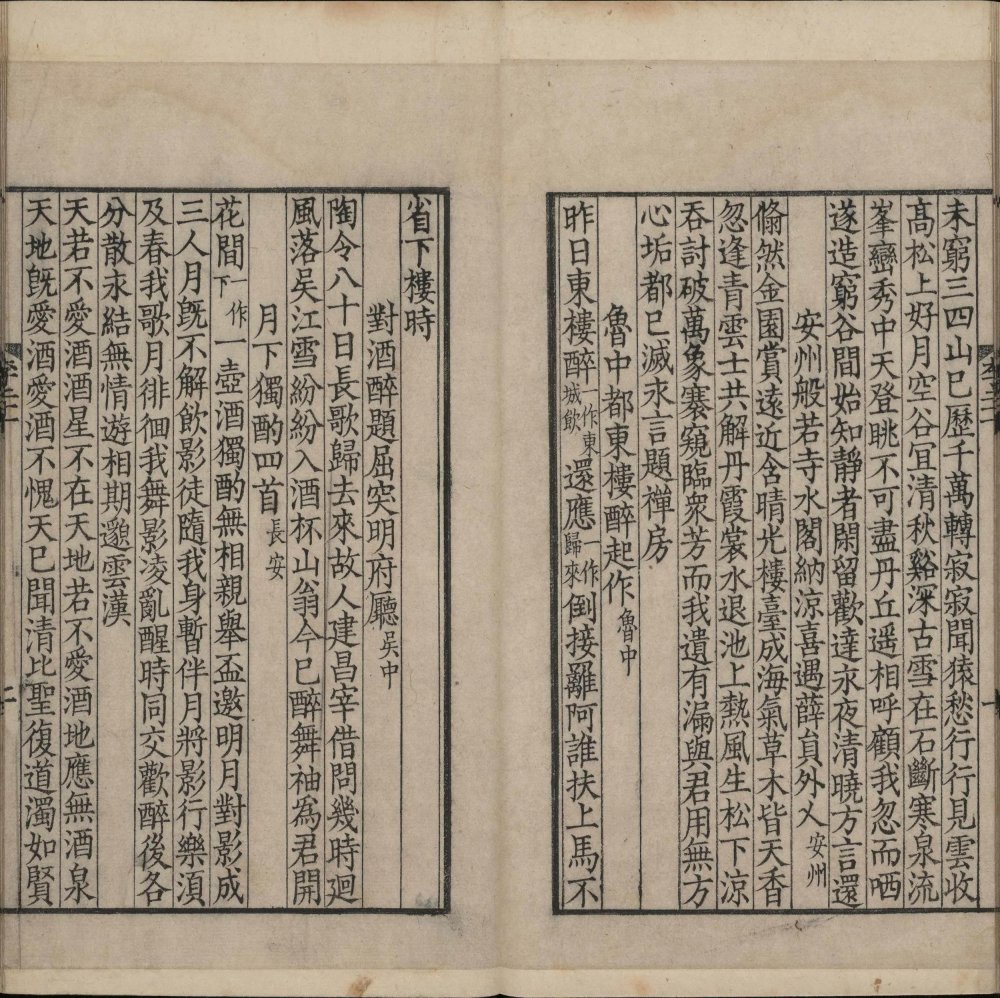 未窮三四山已歷千萬轉寂寂聞猿愁行行見雲收
髙松上好月空谷冝清秋谿深古雪在石斷寒泉流
峯巒秀中天登眺不可盡丹丘遥相呼顧我忽而哂
遂造窮谷間始知靜者閑留歡達永夜清曉方言還
安州般若寺水閣納涼喜遇薛員外乂安州
翛然金園賞遠近含晴光樓臺成海氣草木皆天香
忽逢青雲士共解丹霞裳水退池上熱風生松下涼
吞討破萬象褰窺臨衆芳而我遺有漏與君用無方
心垢都已滅永言題禪房
魯中都東樓醉起作魯中
昨日東樓醉一作東城飲還應一作歸來倒接䍦阿誰扶上馬不
省下樓時
對酒醉題屈突明府廳吴中
陶令八十日長歌歸去來故人建昌宰借問幾時廻
風落吴江雪紛紛入酒杯山翁今已醉舞袖爲君開
月下獨酌四首長安
花間一作下一壺酒獨酌無相親舉盃邀明月對影成
三人月旣不解飲影徒隨我身暫伴月將影行樂須
及春我歌月徘徊我舞影凌亂醒時同交歡醉後各
分散永結無情遊相期邈雲漢
天若不愛酒酒星不在天地若不愛酒地應無酒泉
天地旣愛酒愛酒不愧天已聞清比聖復道濁如賢